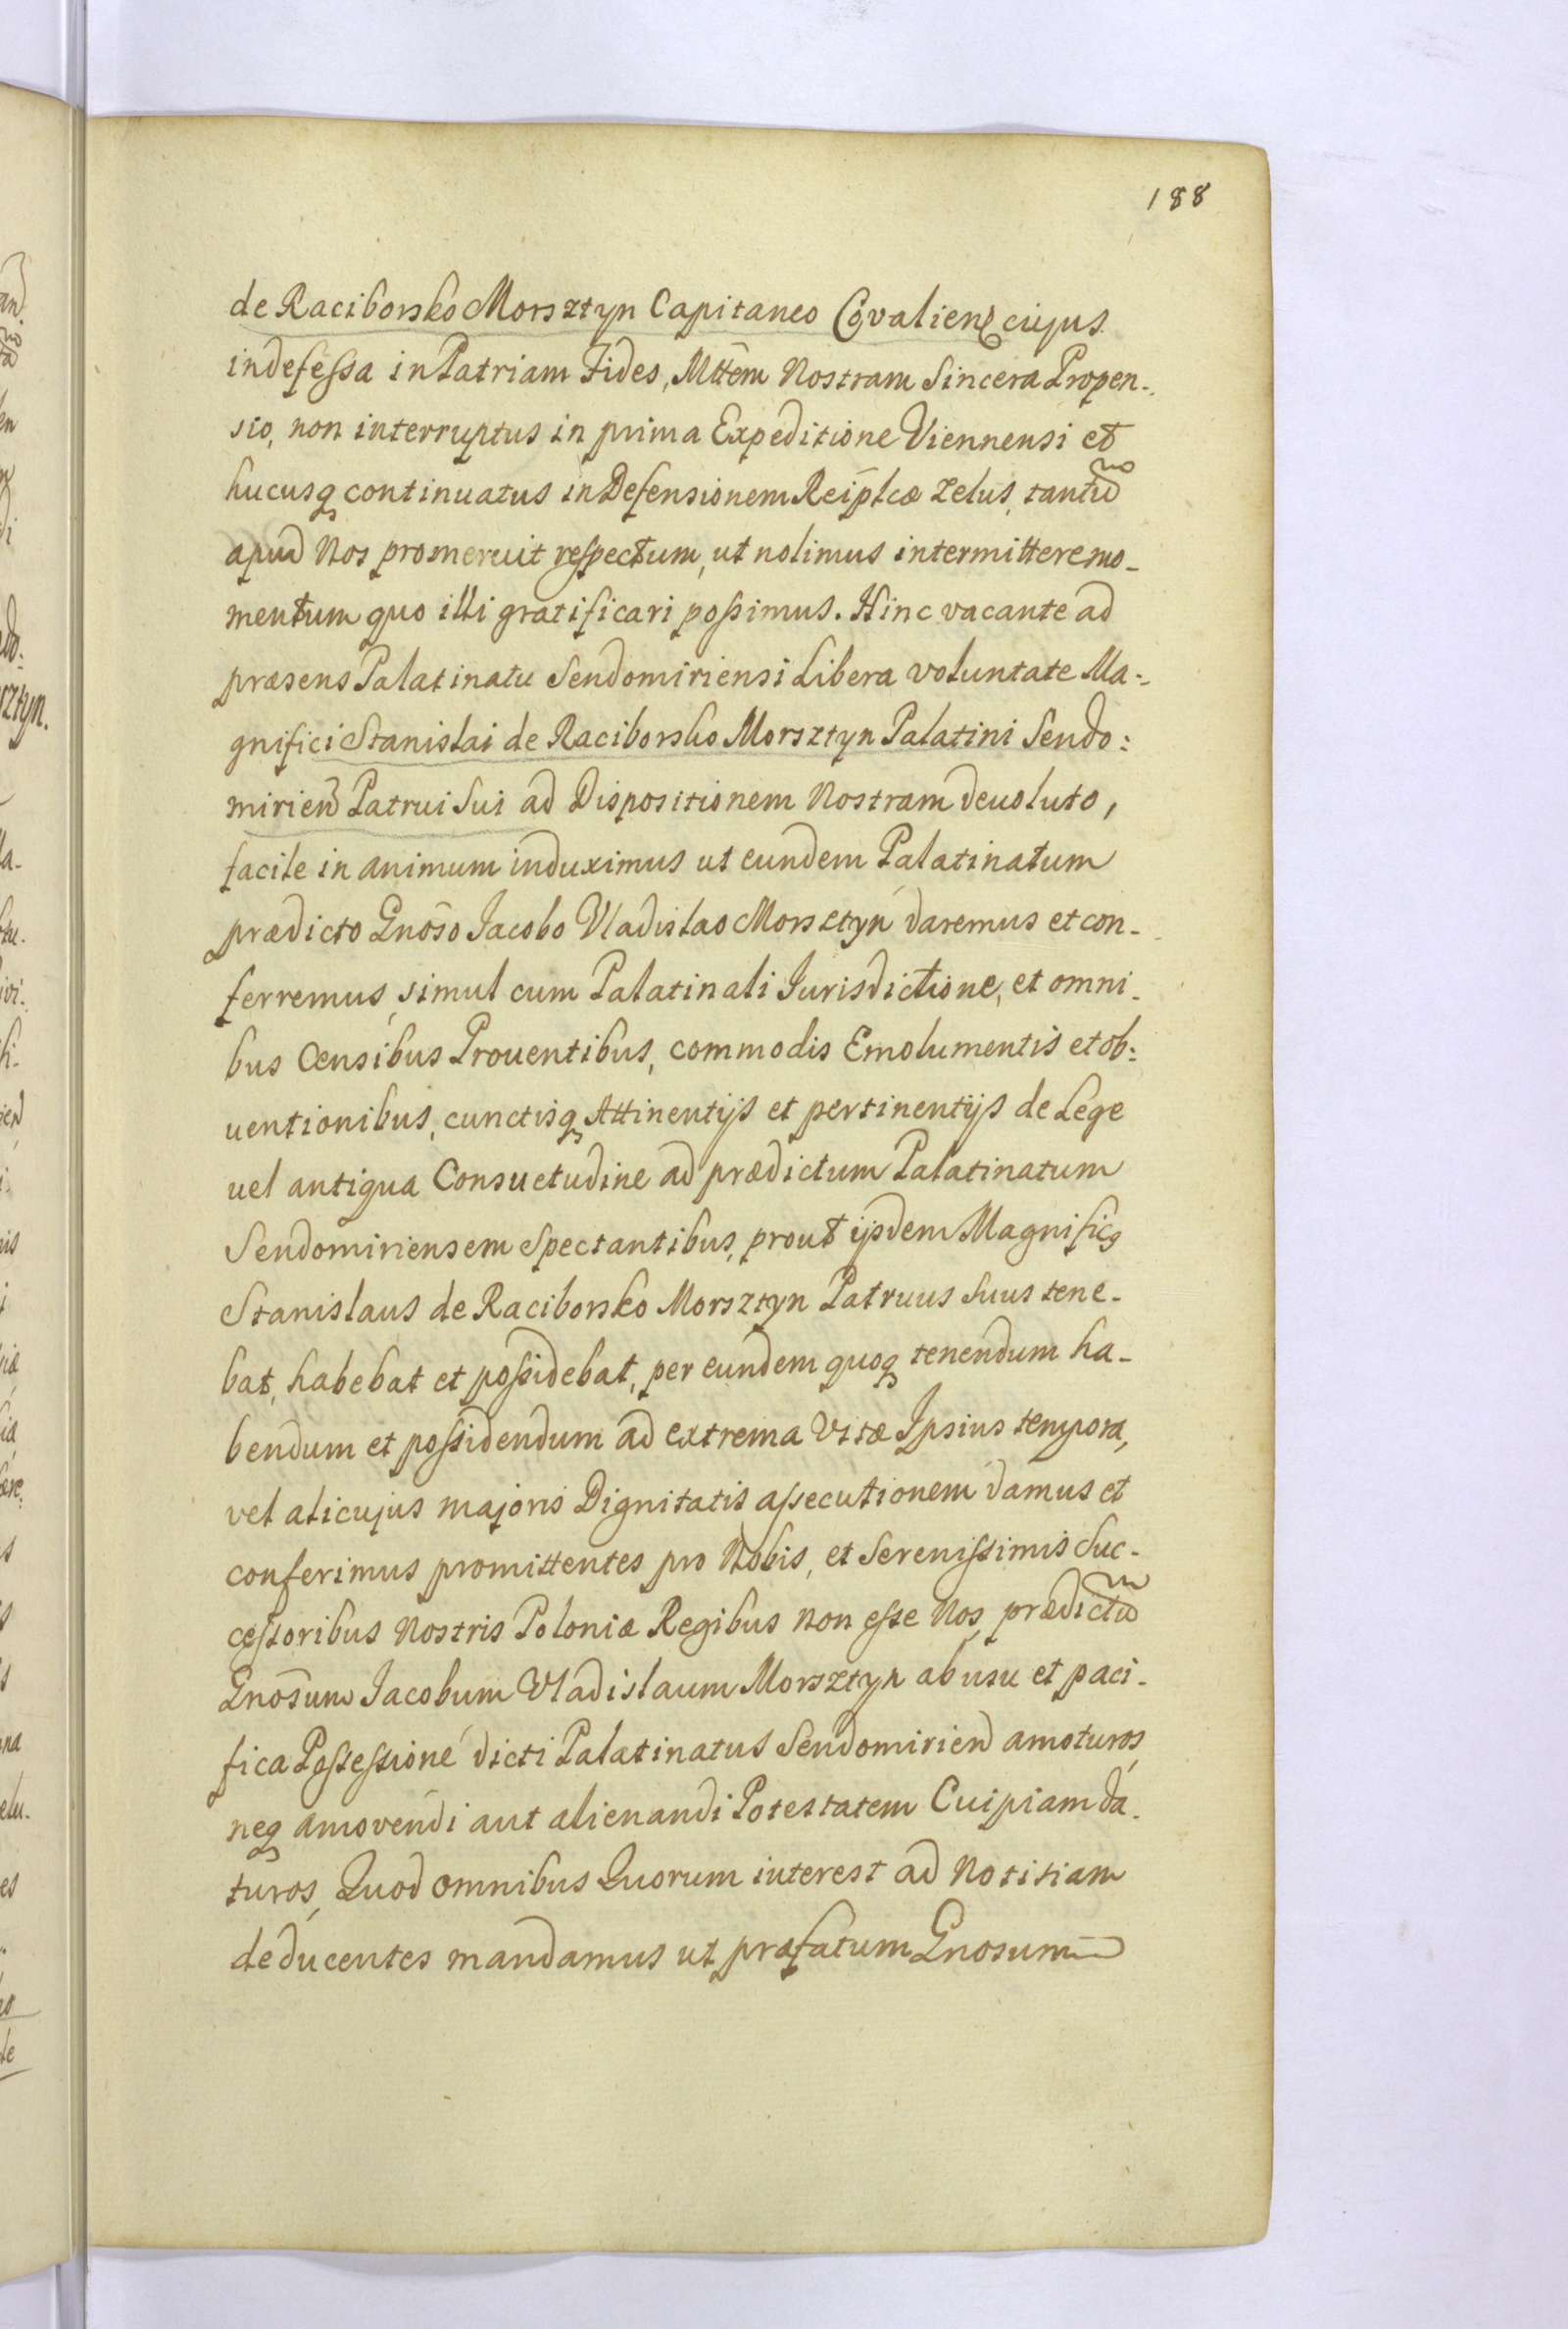 188
de Raciborsko Morsztyn Capitaneo Covalien cujus
indefessa in Patriam Fides, Mttem Nostram Sincera Propen-
sio, non interruptus in prima Expeditione Viennensi et
hucusq continuatus in Defensionem Reiplcæ zelus, tantũ
apud Nos promeruit respectum, ut nolimus intermittere mo-
mentum quo illi gratificari possimus. Hinc vacante ad
præsens Palatinatu Sendomiriensi Libera voluntate Ma-
gnifici Stanislai de Raciborsko Morsztyn Palatini Sendo:
mirien Patrui Sui ad Dispositionem Nostram devoluto,
facile in animum induximus ut eundem Palatinatum
prædicto Gnõso Jacobo Vladislao Morsztyn daremus et con-
ferremus, simul cum Palatinali Jurisdictione, et omni-
bus Censibus Prouentibus, commodis Emolumentis et ob:
uentionibus, cunctisq Attinentijs et pertinentijs de Lege
uel antiqua Consuetudine ad prædictum Palatinatum
Sendomiriensem Spectantibus, prout ijsdem Magnificq
Stanislaus de Raciborsko Morsztyn Patruus Suus tene-
bat, habebat et possidebat, per eundem quoq tenendum ha-
bendum et possidendum ad extrema Vitæ Ipsius tempora,
vel alicujus majoris Dignitatis assecutionem damus et
conferimus promittentes pro Nobis, et Serenissimis Suc-
cessoribus Nostris Poloniæ Regibus non esse Nos prædictũ
Gnõsum Jacobum Vladislaum Morsztyn ab usu et paci-
fica Possessione dicti Palatinatus Sendomirien amoturos
neq amovendi aut alienandi Potestatem Cuipiam da-
turos, Quod omnibus Quorum interest ad Notitiam
deducentes mandamus ut præfatum Gnosum